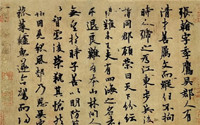 張翰字季鷹吳郡人
有清才善屬文而縱任不拘
時人號之為江東步兵後
謂同郡顧榮曰天下紛紜
禍難未已夫有四海之名者
求退良難吾本山林間
人無望於時子善以明防前
以智慮後榮執其手愴然
翰因見秋風起乃思吳中
菰菜鱸魚遂命駕而歸